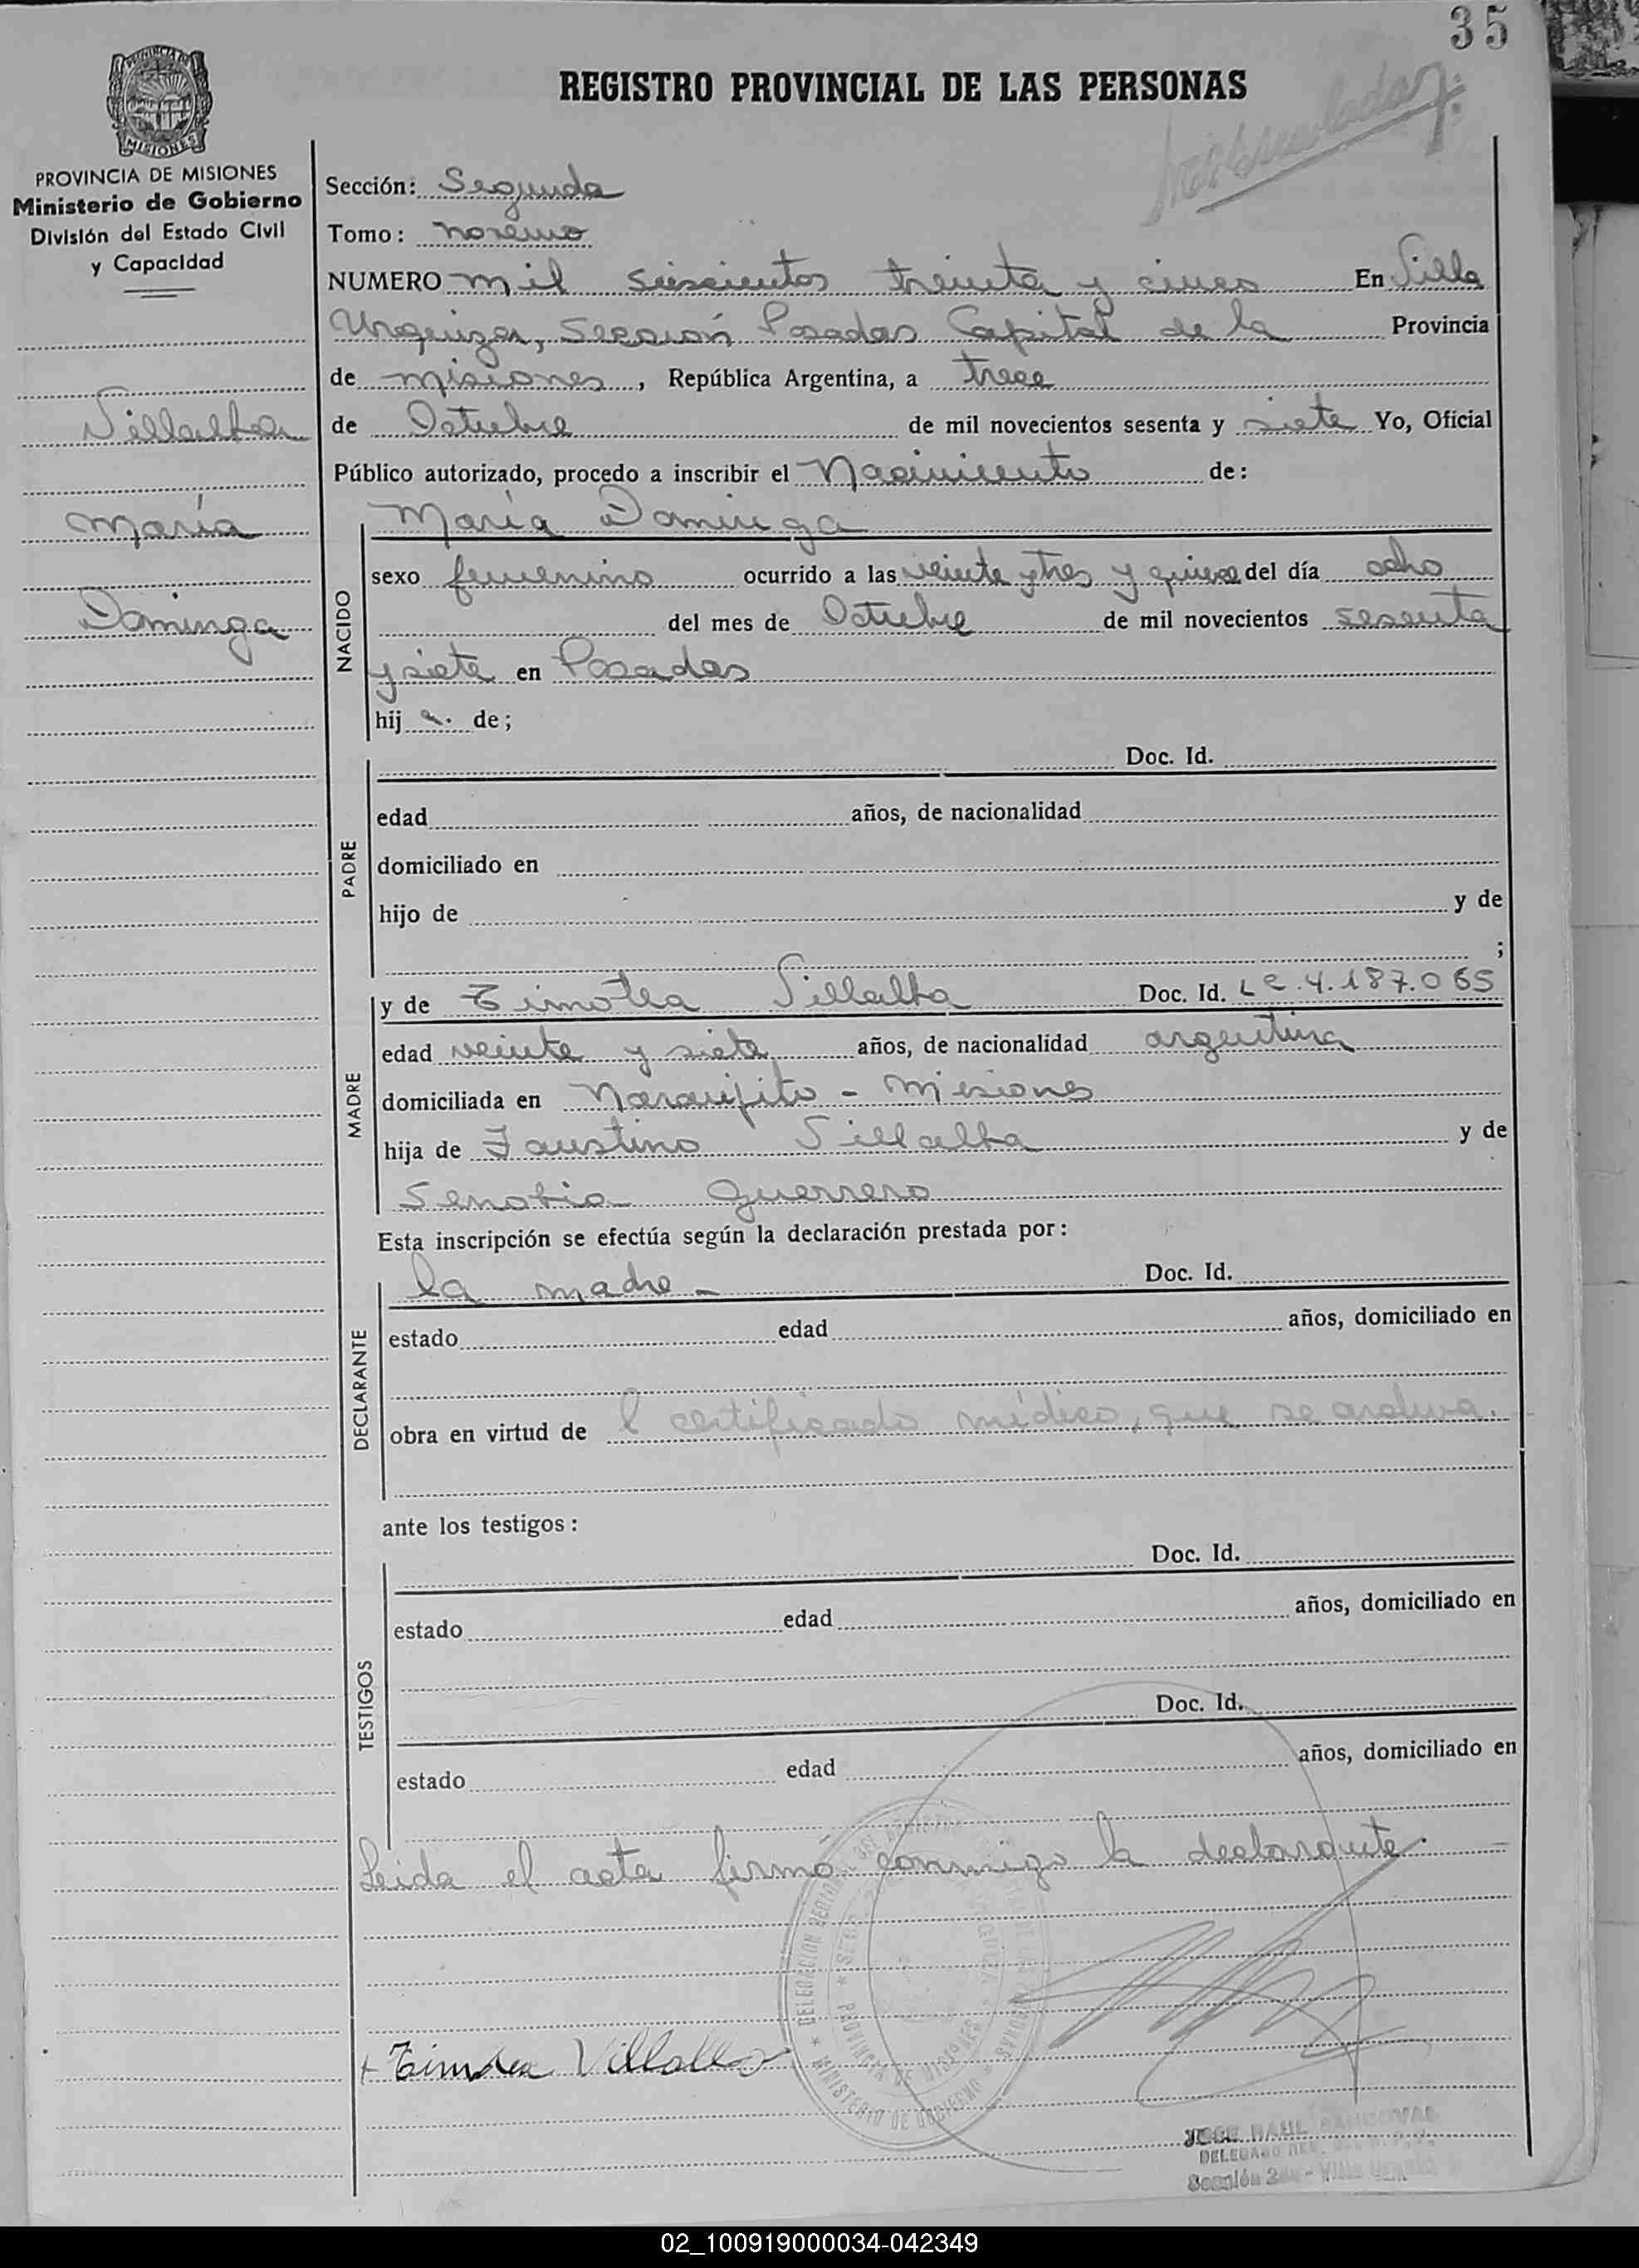 35
REGISTRO PROVINCIAL DE LAS PERSONAS
PROVINCIA DE MISIONES
Ministerio de Gobierno
División del Estado Civil
y Capacidad
Sección: Segunda
Tomo: noveno
NUMERO mil seiscientos treinta y cinco En Villa
Urquiza, Sección Posadas Capital de la Provincia
de misiones, República Argentina, a trece
de Octubre de mil novecientos sesenta y siete Yo, Oficial
Público autorizado, procedo a inscribir el Nacimiento de:
Villalba
María
Dominga
NACIDO
María Dominga
sexo femenino ocurrido a las veinte y tres y quince del día ocho
del mes de Octubre de mil novecientos sesenta
y siete en Posadas
hij a. de;
PADRE
Doc. Id.
edad años, de nacionalidad
domiciliado en
hijo de y de
;
MADRE
y de Timotea Villalba Doc. Id. LC. 4.187.065
edad veinte y siete años, de nacionalidad argentina
domiciliada en Naranjito - Misiones
hija de Faustino Villalba y de
Senobia Guerrero
Esta inscripción se efectúa según la declaración prestada por:
DECLARANTE
la madre - Doc. Id.
estado edad años, domiciliado en
obra en virtud de l certificado médico, que se archiva.
ante los testigos:
TESTIGOS
Doc. Id.
estado edad años, domiciliado en
Doc. Id.
estado edad años, domiciliado en
Leida el acta firmó conmigo la declarante.
Timotea Villalba
PROVINCIA DE MISIONES
MINISTERIO DE GOBIERNO
JOSE RAUL SANDOVAL
DELEGADO
Sección 2da - Villa Urquiza
02_100919000034-042349